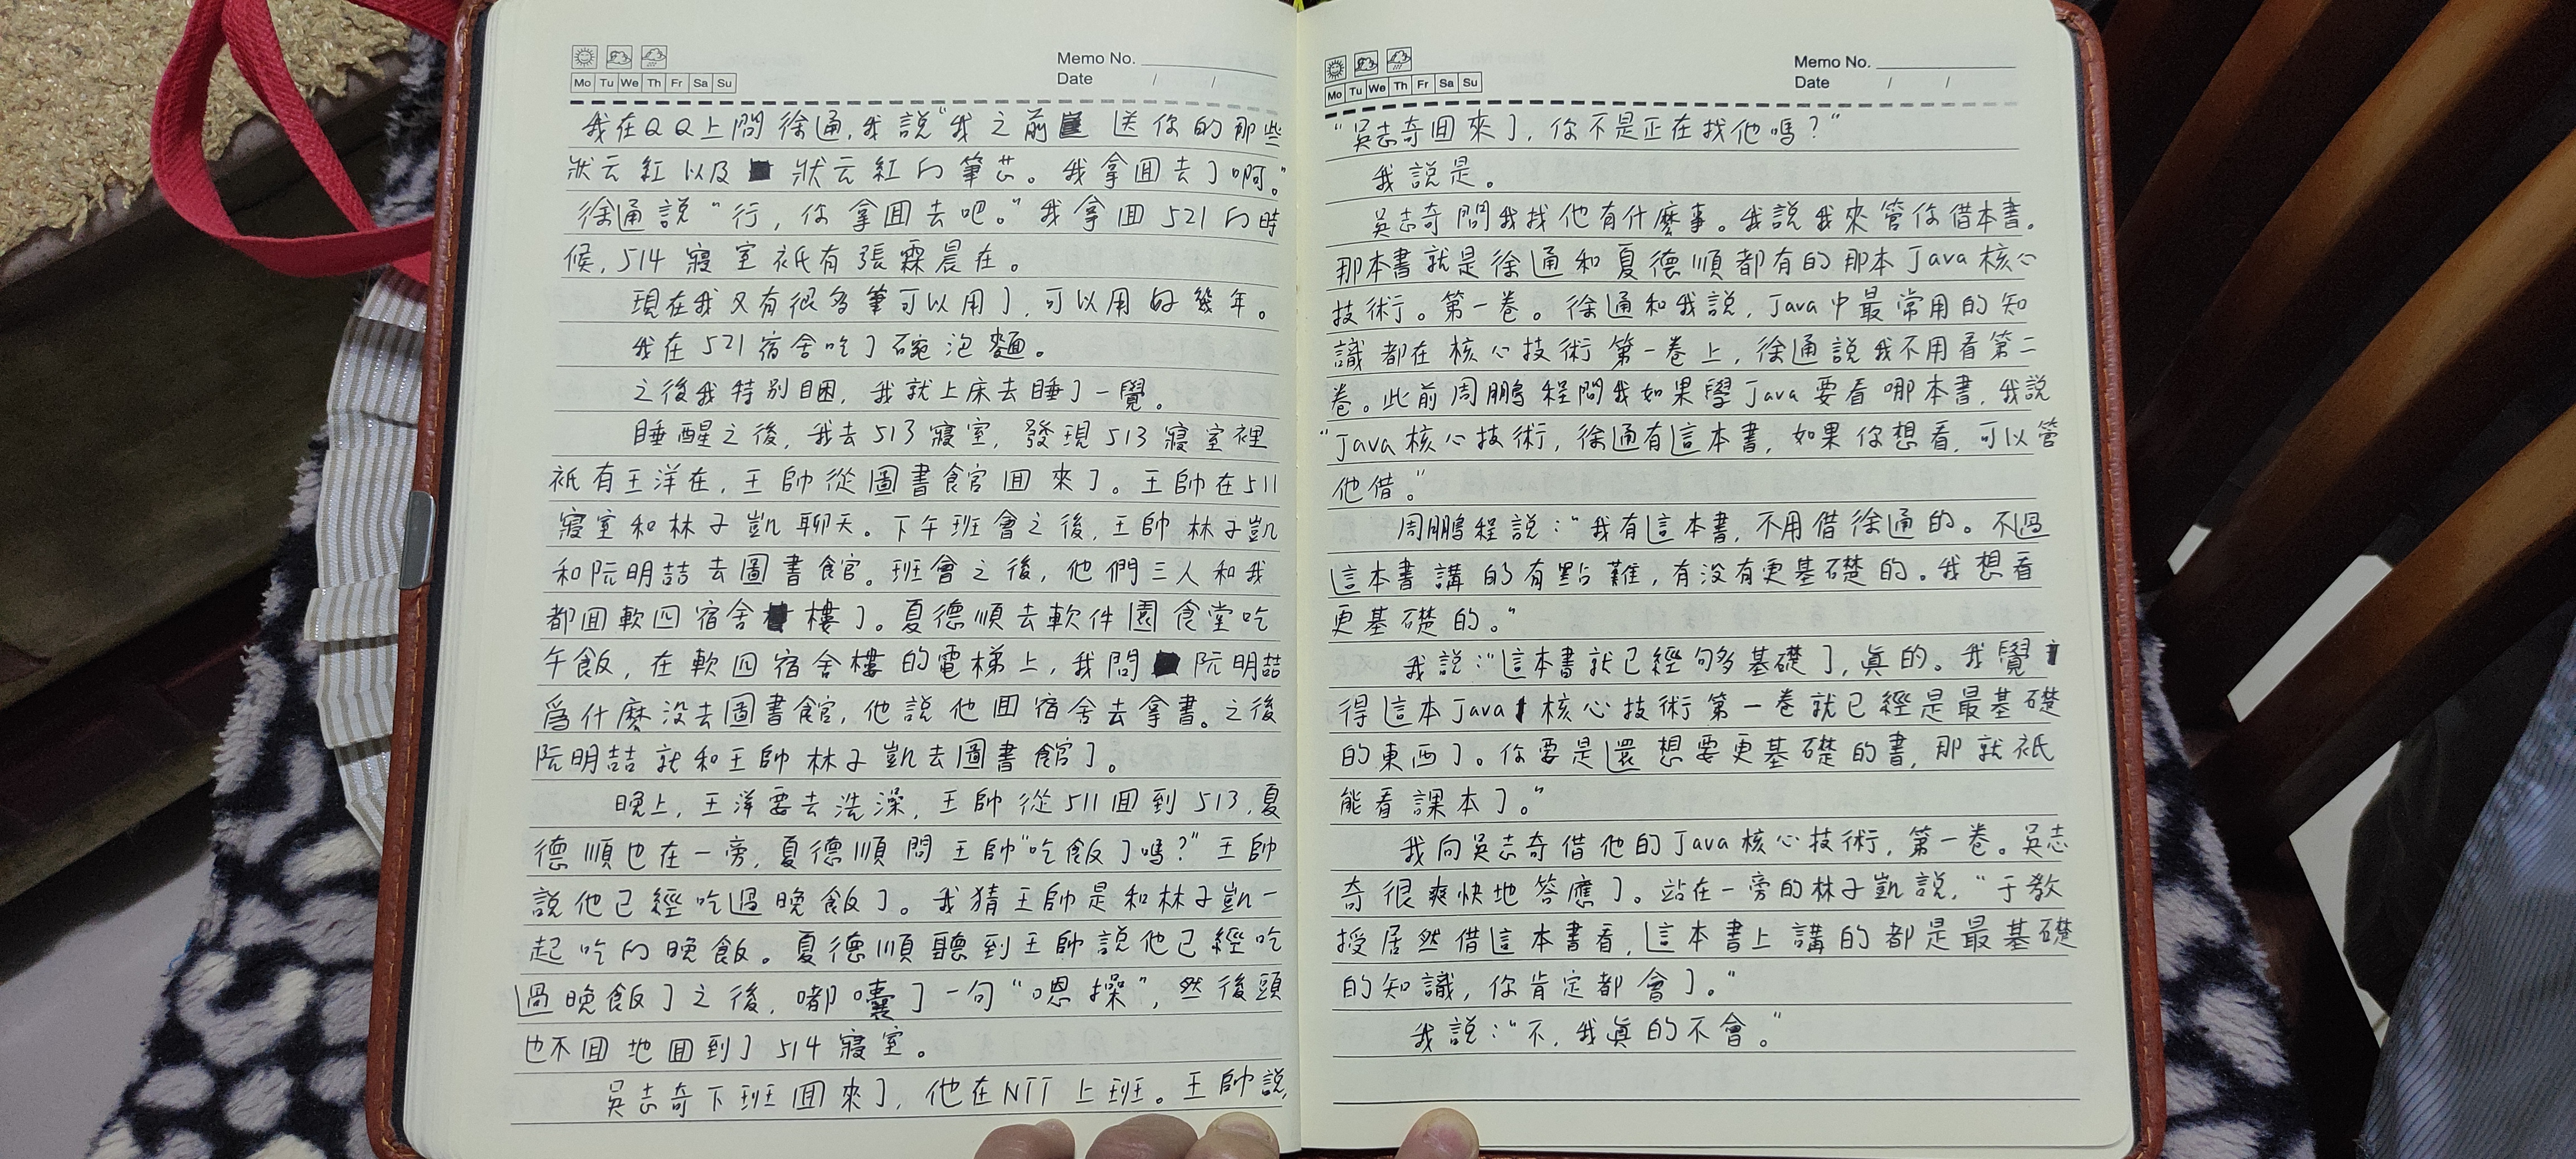 Memo No.
Mo Tu We Th Fr Sa Su
Date / /
我在QQ上問徐通,我說“我之前送你的那些
狀元紅以及狀元紅的筆芯。我拿回去了啊。”
徐通說“行,你拿回去吧。”我拿回521的時
候,514寢室祇有張霖晨在。
現在我又有很多筆可以用了,可以用好幾年。
我在521宿舍吃了碗泡麵。
之後我特別困,我就上床去睡了一覺。
睡醒之後,我去513寢室,發現513寢室裡
祇有王洋在,王帥從圖書館回來了。王帥在511
寢室和林子凱聊天。下午班會之後,王帥林子凱
和阮明喆去圖書館。班會之後,他們三人和我
都回軟四宿舍樓了。夏德順去軟件園食堂吃
午飯,在軟四宿舍樓的電梯上,我問阮明喆
爲什麼沒去圖書館,他說他回宿舍去拿書。之後
阮明喆就和王帥林子凱去圖書館了。
晚上,王洋要去洗澡,王帥從511回到513,夏
德順也在一旁,夏德順問王帥“吃飯了嗎?”王帥
說他已經吃過晚飯了。我猜王帥是和林子凱一
起吃的晚飯。夏德順聽到王帥說他已經吃
過晚飯了之後,嘟囔了一句“嗯操”,然後頭
也不回地回到了514寢室。
吳志奇下班回來了,他在NTT上班。王帥說,
Memo No.
Mo Tu We Th Fr Sa Su
Date / /
“吳志奇回來了,你不是正在找他嗎?”
我說是。
吳志奇問我找他有什麼事。我說我來管你借本書。
那本書就是徐通和夏德順都有的那本Java核心
技術。第一卷。徐通和我說,Java中最常用的知
識都在核心技術第一卷上,徐通說我不用看第二
卷。此前周鵬程問我如果學Java要看哪本書,我說
“Java核心技術,徐通有這本書,如果你想看,可以管
他借。”
周鵬程說:“我有這本書,不用借徐通的。不過
這本書講的有點難,有沒有更基礎的。我想看
更基礎的。”
我說:“這本書就已經夠多基礎了,真的。我覺
得這本Java核心技術第一卷就已經是最基礎
的東西了。你要是還想要更基礎的書,那就祇
能看課本了。”
我向吳志奇借他的Java核心技術,第一卷。吳志
奇很爽快地答應了。站在一旁的林子凱說,“于教
授居然借這本書看,這本書上講的都是最基礎
的知識,你肯定都會了。”
我說:“不,我真的不會。”